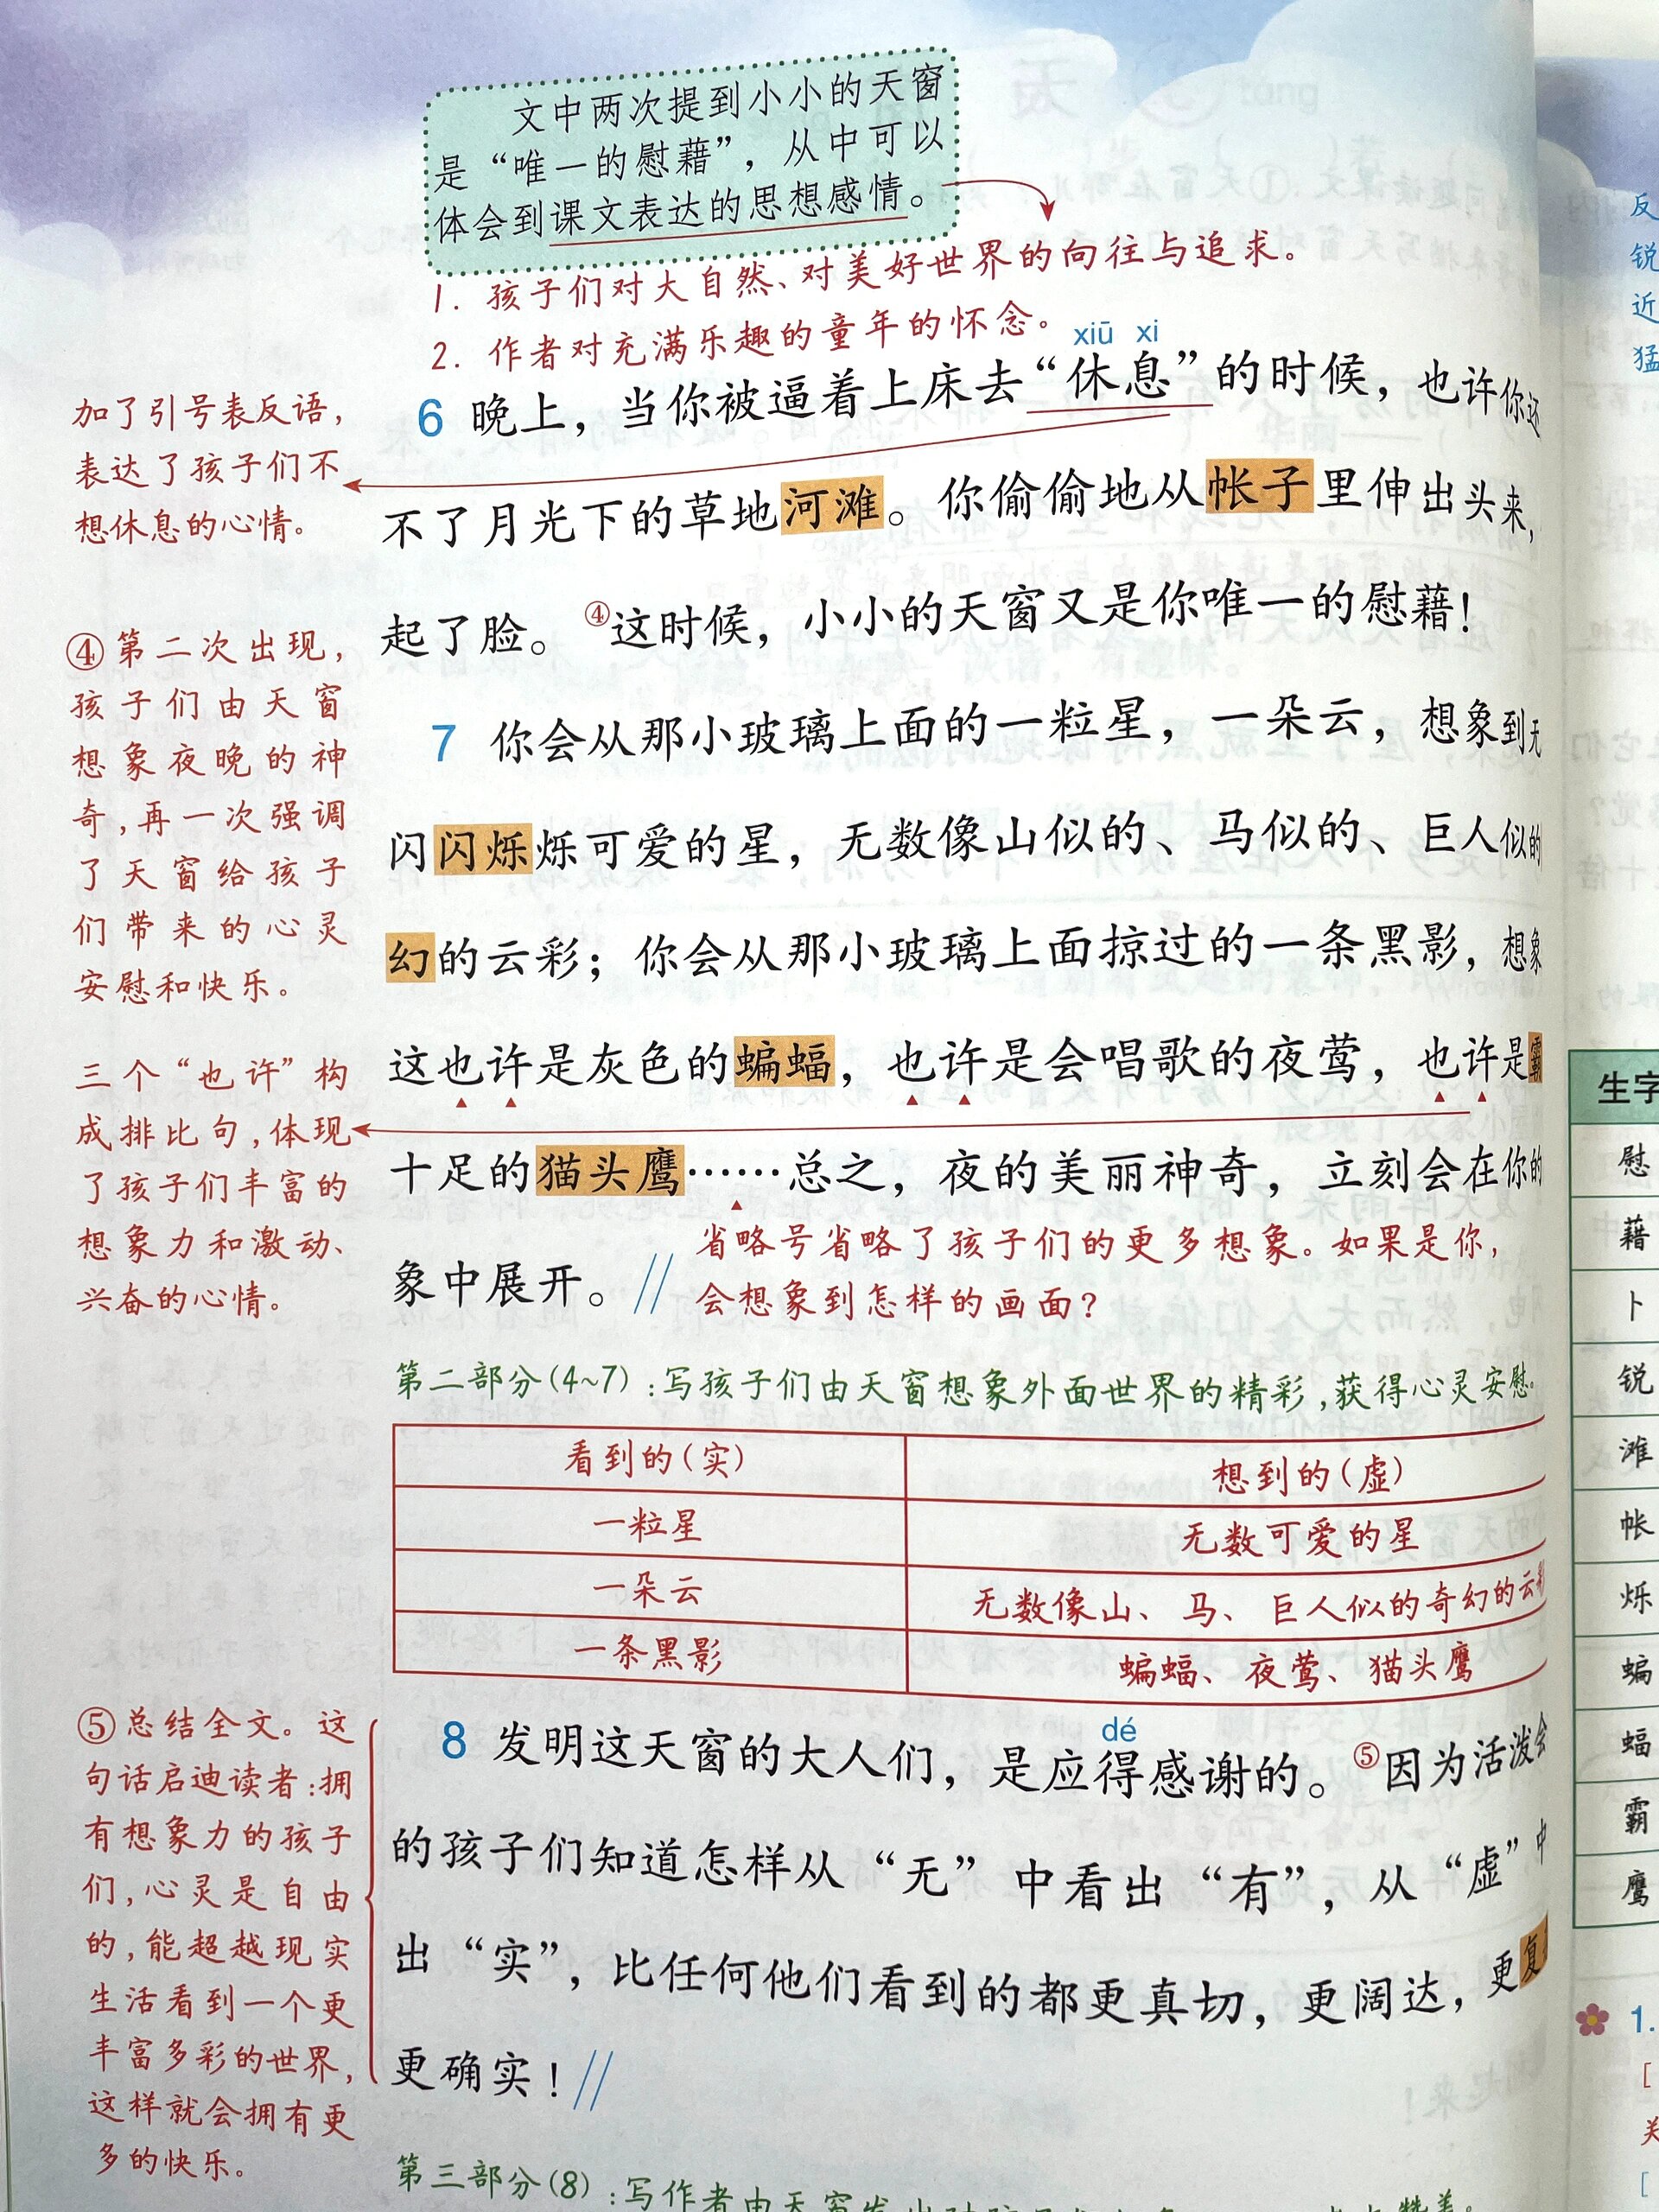 文中两次提到小小的天窗
是“唯一的慰藉”，从中可以
体会到课文表达的思想感情。
1. 孩子们对大自然、对美好世界的向往与追求。
2. 作者对充满乐趣的童年的怀念。
xiū xi
6 晚上，当你被逼着上床去“休息”的时候，也许你还
不了月光下的草地河滩。你偷偷地从帐子里伸出头来，
起了脸。④这时候，小小的天窗又是你唯一的慰藉！
7 你会从那小玻璃上面的一粒星，一朵云，想象到无
闪闪烁烁可爱的星，无数像山似的、马似的、巨人似的
幻的云彩；你会从那小玻璃上面掠过的一条黑影，想象
这也许是灰色的蝙蝠，也许是会唱歌的夜莺，也许是霸
十足的猫头鹰……总之，夜的美丽神奇，立刻会在你的
象中展开。
省略号省略了孩子们的更多想象。如果是你，
会想象到怎样的画面？
加了引号表反语，
表达了孩子们不
想休息的心情。
④第二次出现，
孩子们由天窗
想象夜晚的神
奇，再一次强调
了天窗给孩子
们带来的心灵
安慰和快乐。
三个“也许”构
成排比句，体现
了孩子们丰富的
想象力和激动、
兴奋的心情。
第二部分(4~7)：写孩子们由天窗想象外面世界的精彩，获得心灵安慰。
看到的(实) 想到的(虚)
一粒星 无数可爱的星
一朵云 无数像山、马、巨人似的奇幻的云彩
一条黑影 蝙蝠、夜莺、猫头鹰
dé
8 发明这天窗的大人们，是应得感谢的。⑤因为活泼会
的孩子们知道怎样从“无”中看出“有”，从“虚”中
出“实”，比任何他们看到的都更真切，更阔达，更复
更确实！
⑤总结全文。这
句话启迪读者：拥
有想象力的孩子
们，心灵是自由
的，能超越现实
生活看到一个更
丰富多彩的世界，
这样就会拥有更
多的快乐。
第三部分(8)：写作者由天窗
反
锐
近
猛
生字
慰
藉
卜
锐
滩
帐
烁
蝙
蝠
霸
鹰
1.
[
关
[